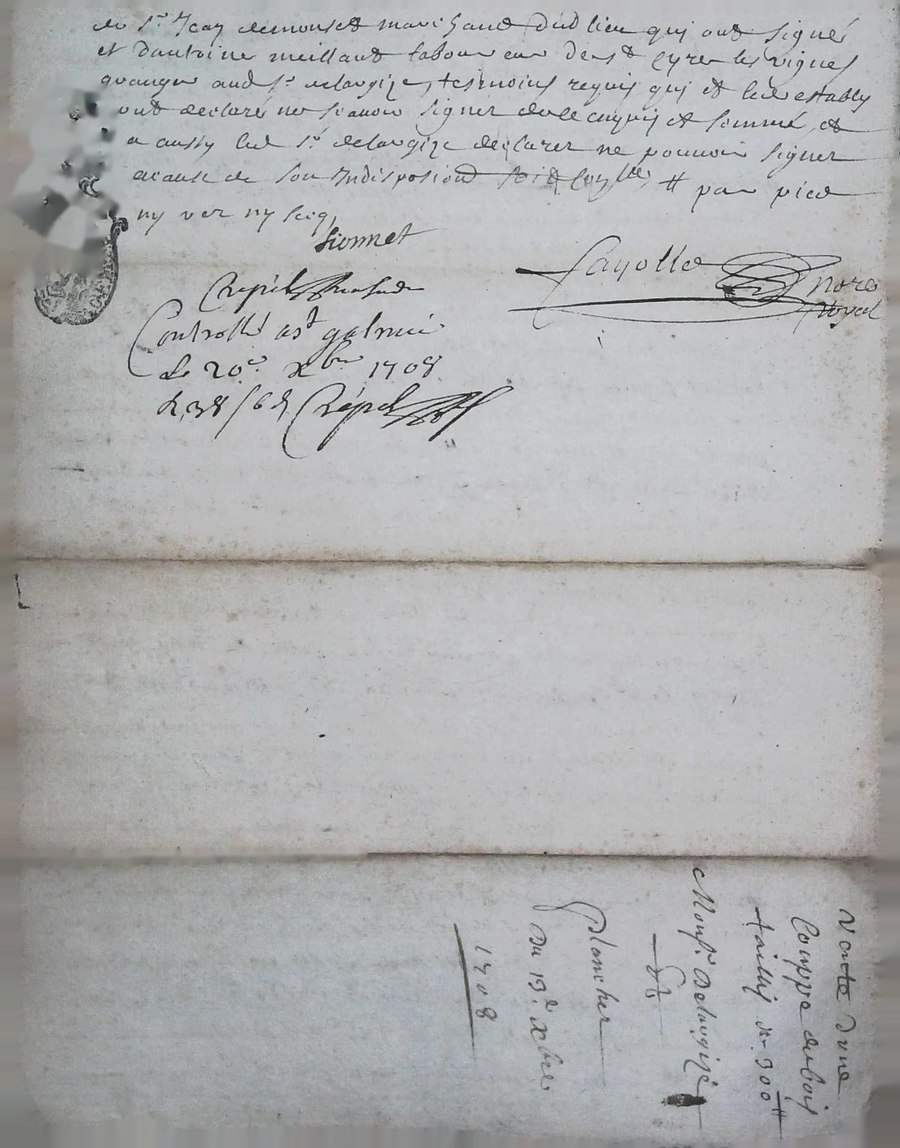 de St Jean marchand dud lieu qui ont signé
et dantoine meilland laboureur de St Cyre les vignes
granger aud Sr delangize, tesmoins requis qui et led estably
ont declaré ne scavoir signer de ce enquis et sommé, et
a aussy led Sr delangize declaré ne pouvoir signer
acause de son Indisposiond par pied
ny ver ny secq,
Sionnet
Crépet
Fayolle Nore
Royal
Controllé a St galmié
le 20e xbre 1708
Crépet
Vante dune
Couppe de bois
taillis de 300 ℔
Monsr Delangizé
et
Plancher
Du 13e xbre
1708